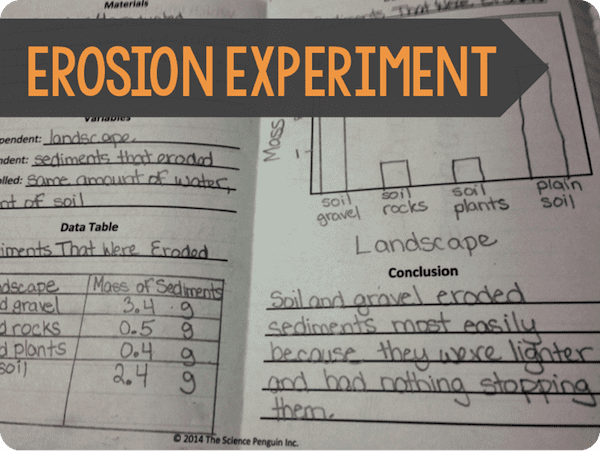 Materials
EROSION EXPERIMENT
Variables
pendent: landscape.
ndent: sediments that eroded
olled: same amount of water,
nt of soil
Data Table
iments That Were Eroded
ndscape Mass of Sediments
d gravel 3.4 g
d rocks 0.5 g
d plants 0.4 g
soil 2.4 g
© 2014 The Science Penguin Inc.
That Were
Mass
1
soil gravel
soil rocks
soil plants
plain soil
Landscape
Conclusion
Soil and gravel eroded
sediments most easily
because they were lighter
and had nothing stopping
them.